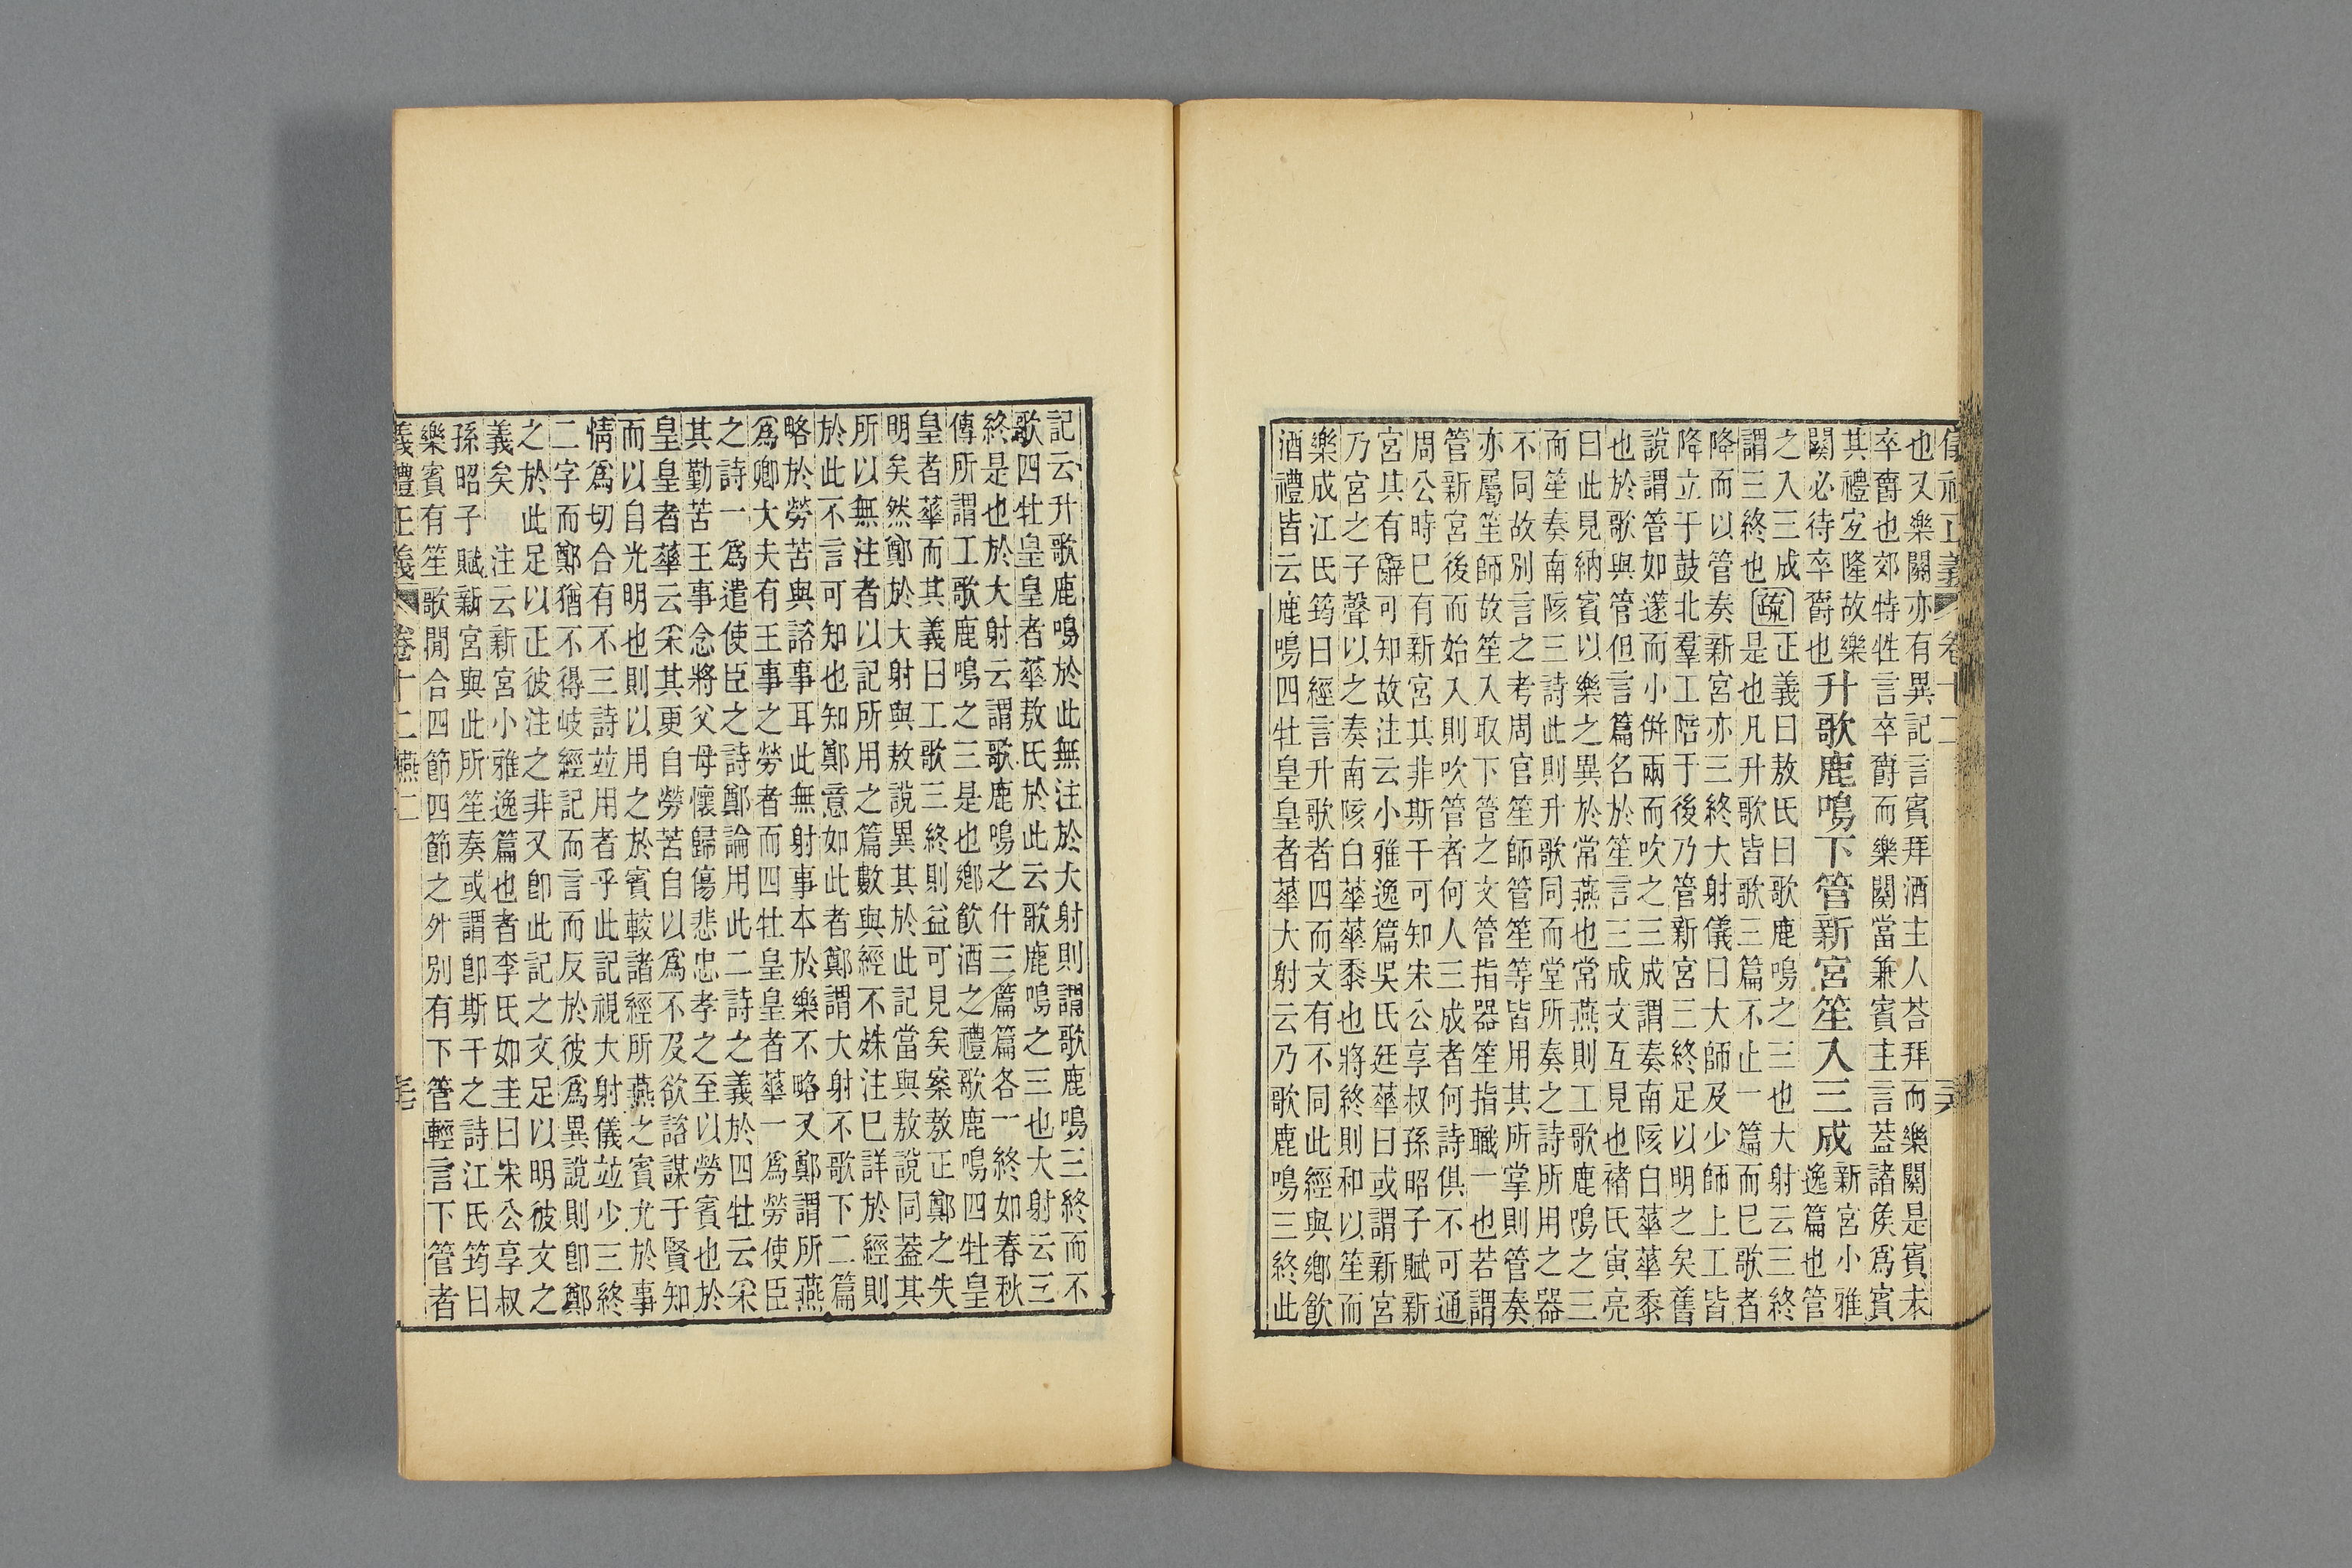 儀禮正義 卷十二 三六
也又樂闋亦有異記言賓拜酒主人荅拜而樂闋是賓未
卒爵也郊特牲言卒爵而樂闋當兼賓主言葢諸矦爲賓
其禮宐隆故樂
闋必待卒爵也
升歌鹿鳴下管新宮笙入三成
新宮小雅
逸篇也管
之入三成
謂三終也
疏
正義曰敖氏曰歌鹿鳴之三也大射云三終
是也凡升歌皆歌三篇不止一篇而已歌者
降而以管奏新宮亦三終大射儀曰大師及少師上工皆
降立于鼓北羣工陪于後乃管新宮三終足以明之矣舊
說謂管如篴而小倂兩而吹之三成謂奏南陔白華華黍
也於歌與管但言篇名於笙言三成文互見也褚氏寅亮
曰此見納賓以樂之異於常燕也常燕則工歌鹿鳴之三
而笙奏南陔三詩此則升歌同而堂所奏之詩所用之器
不同故別言之考周官笙師管笙等皆用其所掌則管奏
亦屬笙師故笙入取下管之文管指器笙指職一也若謂
管新宮後而始入則吹管者何人三成者何詩俱不可通
周公時巳有新宮其非斯干可知宋公享叔孫昭子賦新
宮其有辭可知故注云小雅逸篇吳氏廷華曰或謂新宮
乃宮之子聲以之奏南陔白華華黍也將終則和以笙而
樂成江氏筠曰經言升歌者四而文有不同此經與鄉飲
酒禮皆云鹿鳴四牡皇皇者華大射云乃歌鹿鳴三終此
記云升歌鹿鳴於此無注於大射則謂歌鹿鳴三終而不
歌四牡皇皇者華敖氏於此云歌鹿鳴之三也大射云三
終是也於大射云謂歌鹿鳴之什三篇篇各一終如春秋
傳所謂工歌鹿鳴之三是也鄉飲酒之禮歌鹿鳴四牡皇
皇者華而其義曰工歌三終則益可見矣案敖正鄭之失
明矣然鄭於大射與敖說異其於此記當與敖說同葢其
所以無注者以記所用之篇數與經不姝注巳詳於經則
於此不言可知也知鄭意如此者鄭謂大射不歌下二篇
略於勞苦與諮事耳此無射事本於樂不略又鄭謂所燕
爲卿大夫有王事之勞者而四牡皇皇者華一爲勞使臣
之詩一爲遣使臣之詩鄭論用此二詩之義於四牡云采
其勤苦王事念將父母懷歸傷悲忠孝之至以勞賓也於
皇皇者華云采其更自勞苦自以爲不及欲諮謀于賢知
而以自光明也則以用之於賓較諸經所燕之賓尤於事
情爲切合有不三詩竝用者乎此記視大射儀竝少三終
二字而鄭猶不得岐經記而言而反於彼爲異說則卽鄭
之於此足以正彼注之非又卽此記之文足以明彼文之
義矣 注云新宮小雅逸篇也者李氏如圭曰宋公享叔
孫昭子賦新宮與此所笙奏或謂卽斯干之詩江氏筠曰
樂賓有笙歌閒合四節四節之外別有下管輕言下管者
義禮正義 卷十二燕二 三七